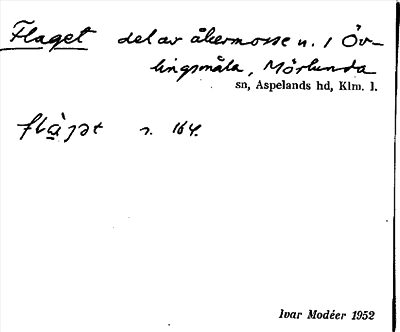 Flaget del av åkermosse n. i Öv-
lingsmåla, Mörlunda
sn, Aspelands hd, Klm. l.
s. 164.
Ivar Modéer 1952